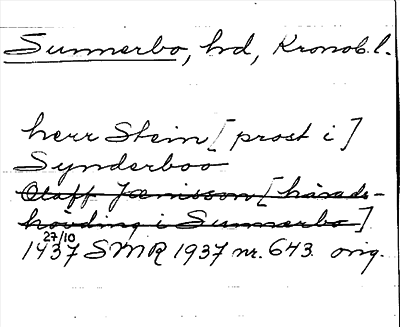 Sunnerbo, hd, Kronob. l.
herr Stein [prost i]
Synderboo
Olaff Jönisson [härads-
hövding i Sunnerbo]
27/10
1437 SMR 1937 nr. 643. orig.